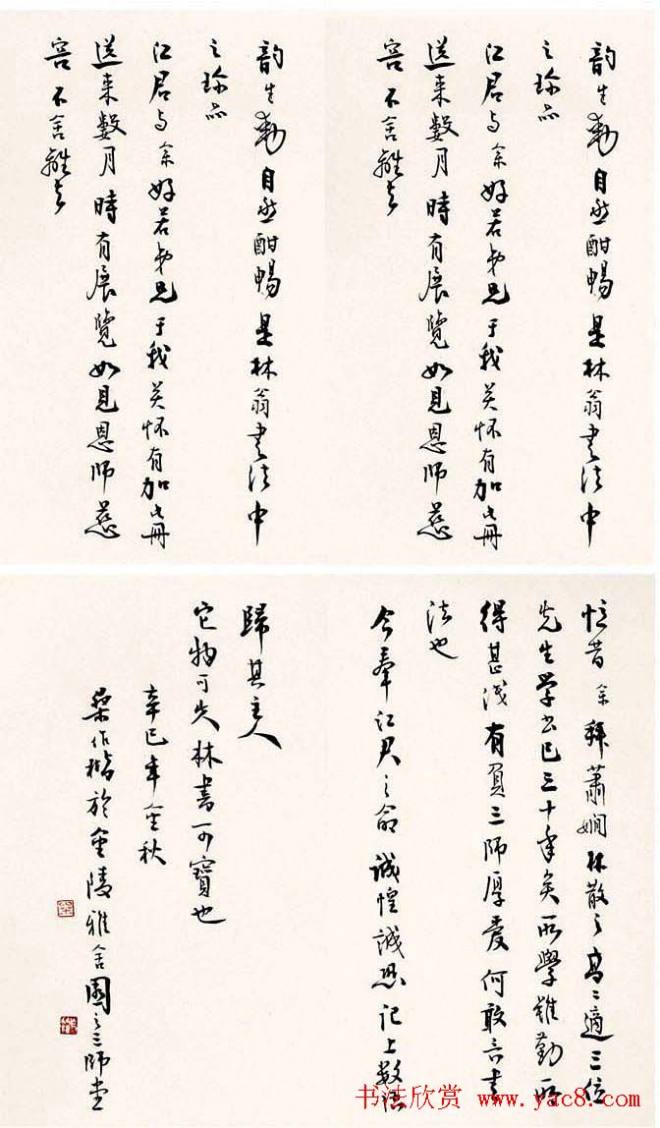 韵生動自然酣暢是林翁書法中
之珍品
江君与余好若弟兄于我关怀有加此冊
送来數月時有展覽如見恩师慈
容不舍離去
韵生動自然酣暢是林翁書法中
之珍品
江君与余好若弟兄于我关怀有加此冊
送来數月時有展覽如見恩师慈
容不舍離去
忆昔余拜蕭嫻林散之高二適三位
先生学书已三十年矣所學雖勤所
得甚浅有負三师厚爱何敢言書
法也
今奉江君之命誠惶誠恐记上数语
歸其主人
它物可失林書可寶也
辛巳年金秋
桑作楷於金陵雅舍園之三师堂
书法欣赏 www.yac8.com